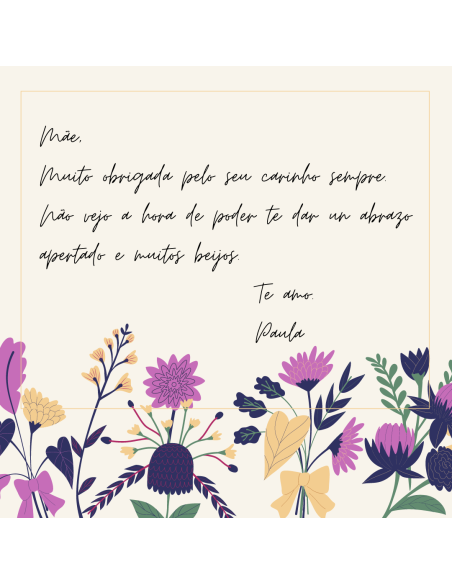 Mãe,
Muito obrigada pelo seu carinho sempre.
Não vejo a hora de poder te dar un abrazo
apertado e muitos beijos.
Te amo.
Paula